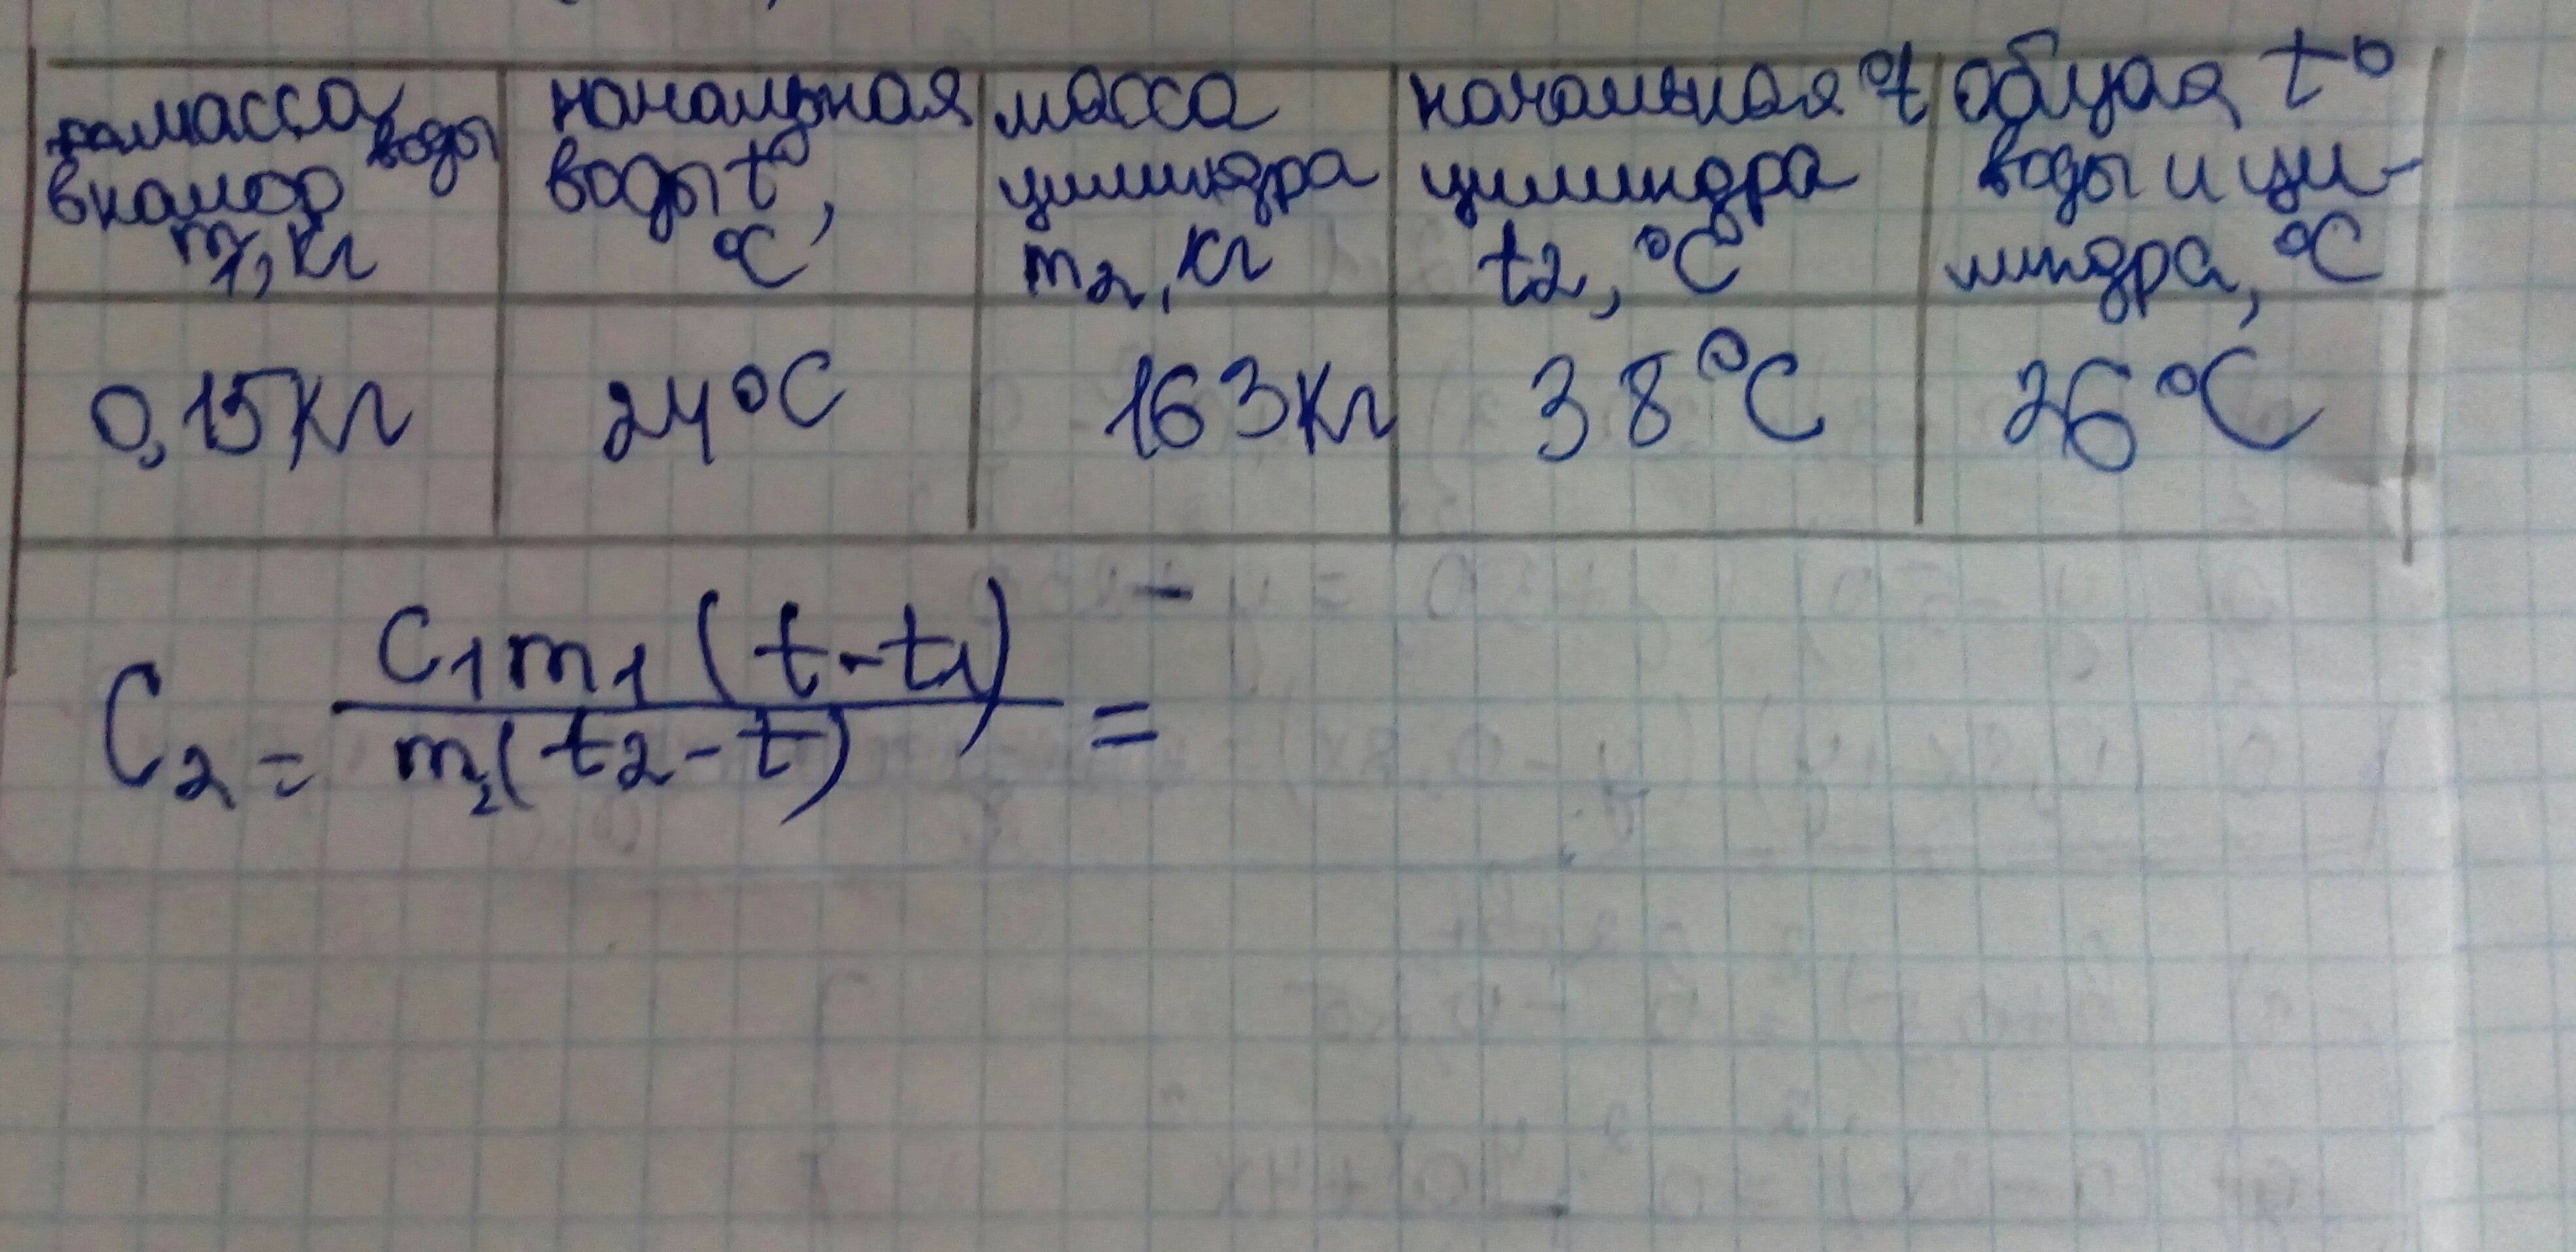 масса воды
в калор
m1, кг
начальная
воды t°,
°C
масса
цилиндра
m2, кг
начальная °t
цилиндра
t2, °C
общая t°
воды и ци-
линдра, °C
0,15кг
24°C
163кг
38°C
26°C
C2 = C1m1(t-t1) / m2(t2-t) =